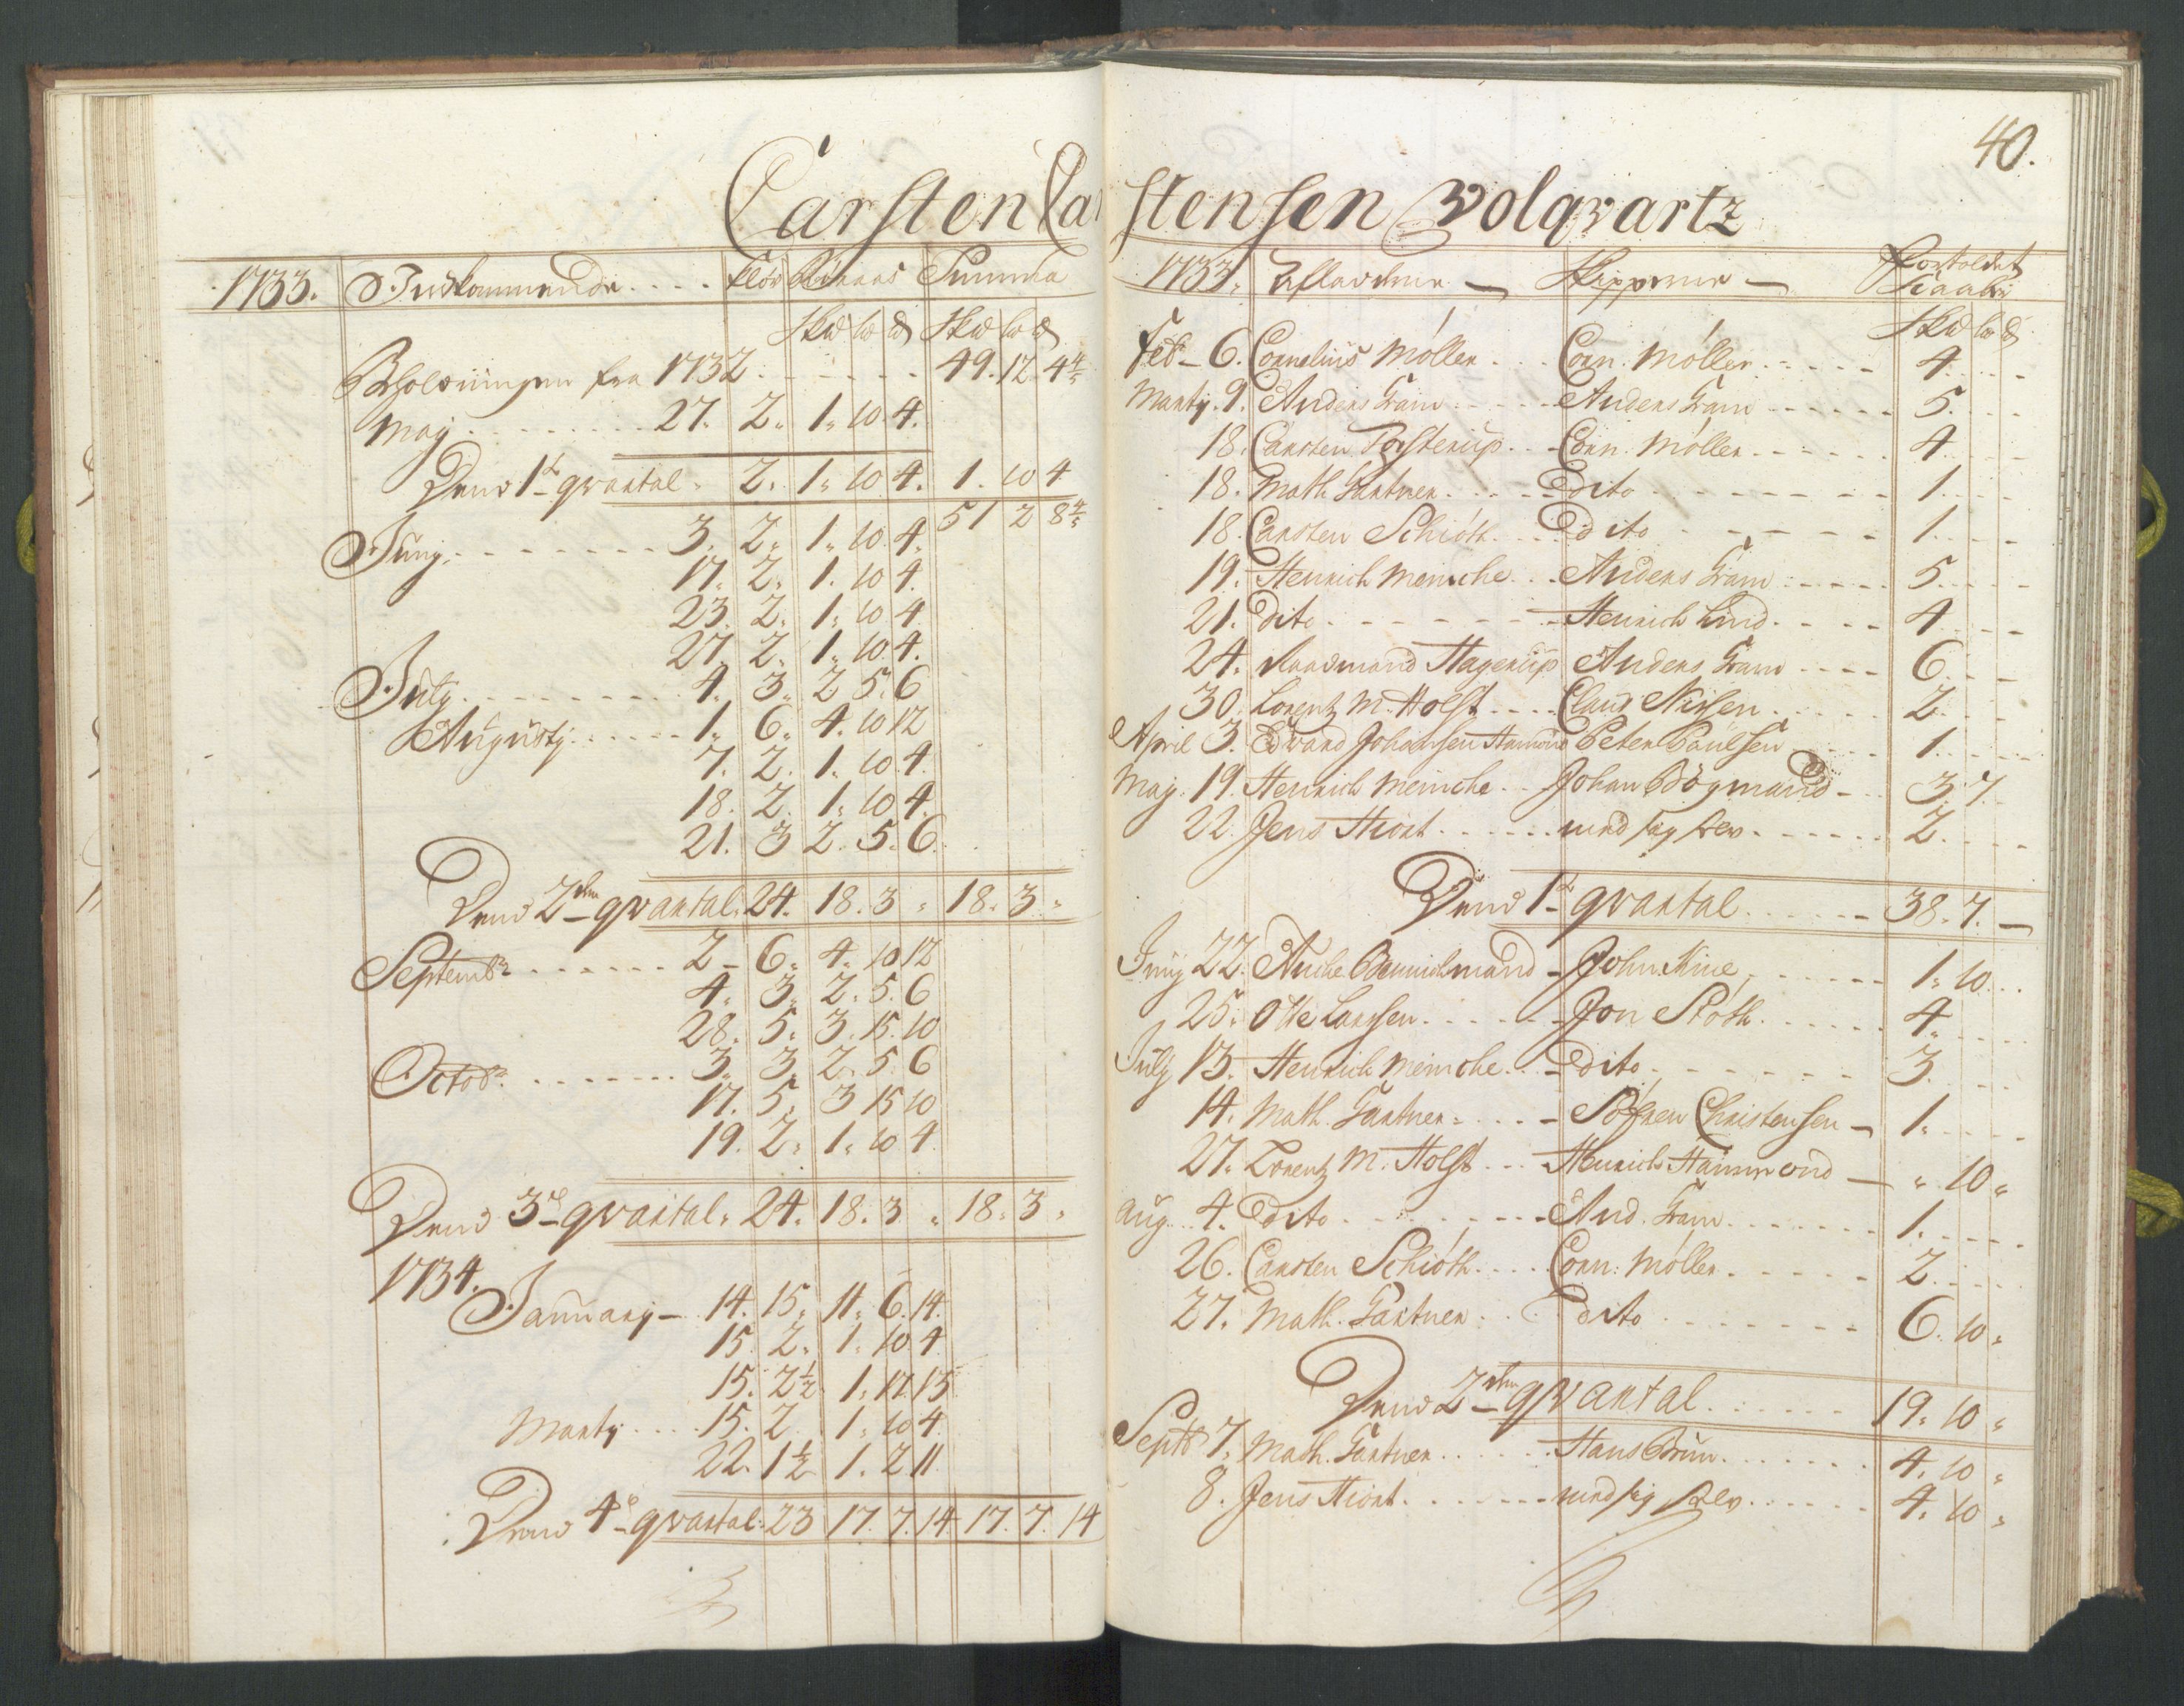 40.
Carsten Carstensen Volqvartz
1733. Indkommende .... Flor Rimaas Summa
Skđ lƀ ℔ Skđ lƀ ℔
Beholdningen fra 1732 . . . . . 49. 12. 4 4/5
Maj . . . . . . . 27. 2. 1. 10. 4.
Dend 1te qvartal. 2. 1. 10. 4. 1. 10 4
51 2 8 4/5
Junij. . . . . . . . 3. 2. 1. 10. 4.
17. 2. 1. 10 4.
23. 2. 1. 10 4
27. 2. 1. 10. 4.
July . . . . . . . . 4. 3. 2 5. 6
Augusty . . . . . . 1. 6. 4. 10 12
7. 2. 1. 10. 4
18. 2. 1. 10 4.
21. 3 2. 5. 6.
Dend 2den qvartal. 24. 18. 3 . 18. 3.
Septembr . . . . . . 2 - 6. 4. 10 12
4. 3. 2. 5. 6
28. 5. 3. 15. 10
Octobr. . . . . . . . 3. 3. 2. 5. 6
17. 5. 3 15 10
19. 2. 1. 10 4
Dend 3die qvartal. 24. 18. 3 . 18. 3.
1734.
January - 14. 15. 11. 6. 14.
15. 2. 1. 10 4
15. 2½ 1. 17. 15
Marty . . . . 15. 2. 1. 10 4.
22. 1½ 1. 2 11
Dend 4de qvartal. 23 17. 7. 14 17. 7. 14
1733. Skipperne - Fortoldet
Skđ lƀ ℔
Feb - 6. Cornelius Møller . . . Corn. Møller . . . . 4. . .
Marty. 9. Anders Fram . . . . Anders Fram . . . . . 5. . .
18. Carsten Posterup . . - Corn. Møller . . . . . 4. . .
18. Math. Gartner . . . . Dito . . . . . . . 1. . .
18. Carsten Schiöth . . . Dito . . . . . . 1. . .
19. Henrich Meinche . . . Anders Fram . . . . . 5. . .
21. Dito . . . . . . . Henrich Lind . . . . 4. . .
24. Raadmand Hagerup Anders Fram . . . . 6. . .
30. Lorentz M. Holst . . . . Claus Nissen . . . . . 2. . .
April 3. Edvard Johansen Hamond Peter Paulsen . . . . 1. . .
Maj. 19. Henrich Meinche . . Johan Bögmand - . . 3. 7. .
22. Jens Hiort . . . . . . med sig selv . . . . . 2. . .
Dend 1te qvartal . . . . . . 38. 7. -
Junij 22. Anche Bennichmand - John Kine, . . . . . 1. 10. . .
25. Otte Larssen . . . . . . Jon Stöth . . . . . . 4. . .
July 13. Henrich Meinche . . Dito . . . . . . . 3. . .
14. Math. Gartner . . . . - Søfren Christensen - 1. . .
27. Lorentz M. Holst . . . Henrich Hammond - „ 10 „
Aug. . 4. Dito . . . . . . . . And. Fram . . . . . . . 1. . .
26. Carsten Schiöth . . . . Corn: Møller . . . . . 2. . .
27. Math. Gartner . . . Dito . . . . . . . 6. 10 „
Dend 2den qvartal . . . . . 19. 10 „
Septbr 7. Math. Gartner . . . . . . Hans Brun . . . . . . . 4. 10 „
8. Jens Hiort. . . . . . . med sig selv . . . . . 4. 10 „